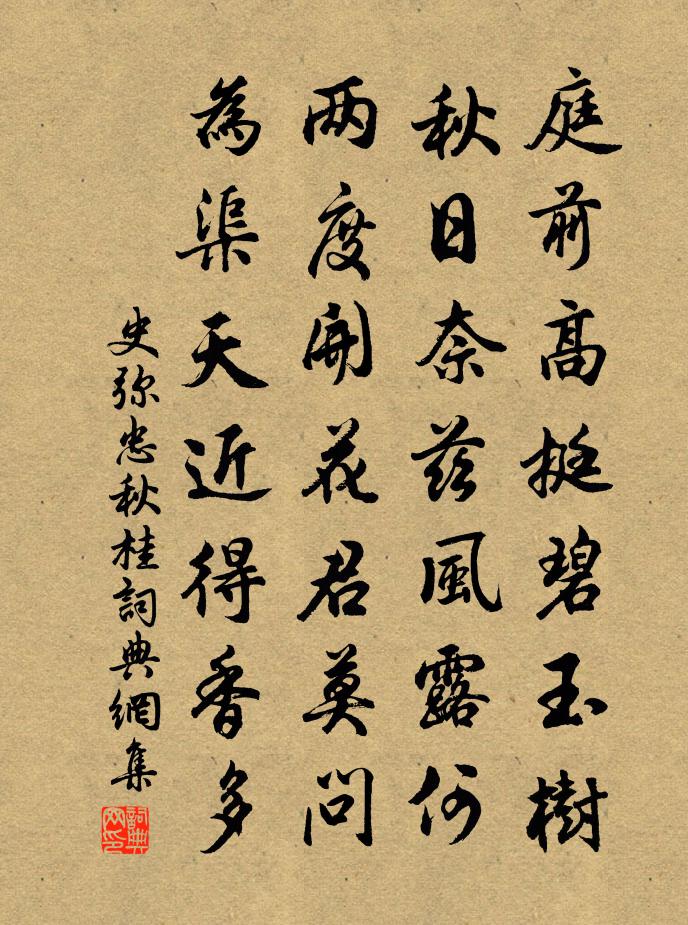 庭前高挺碧玉樹
秋日奈茲風露何
两度開花君莫問
為渠天近得香多
史弥忠秋桂詞典網集
詞典网印